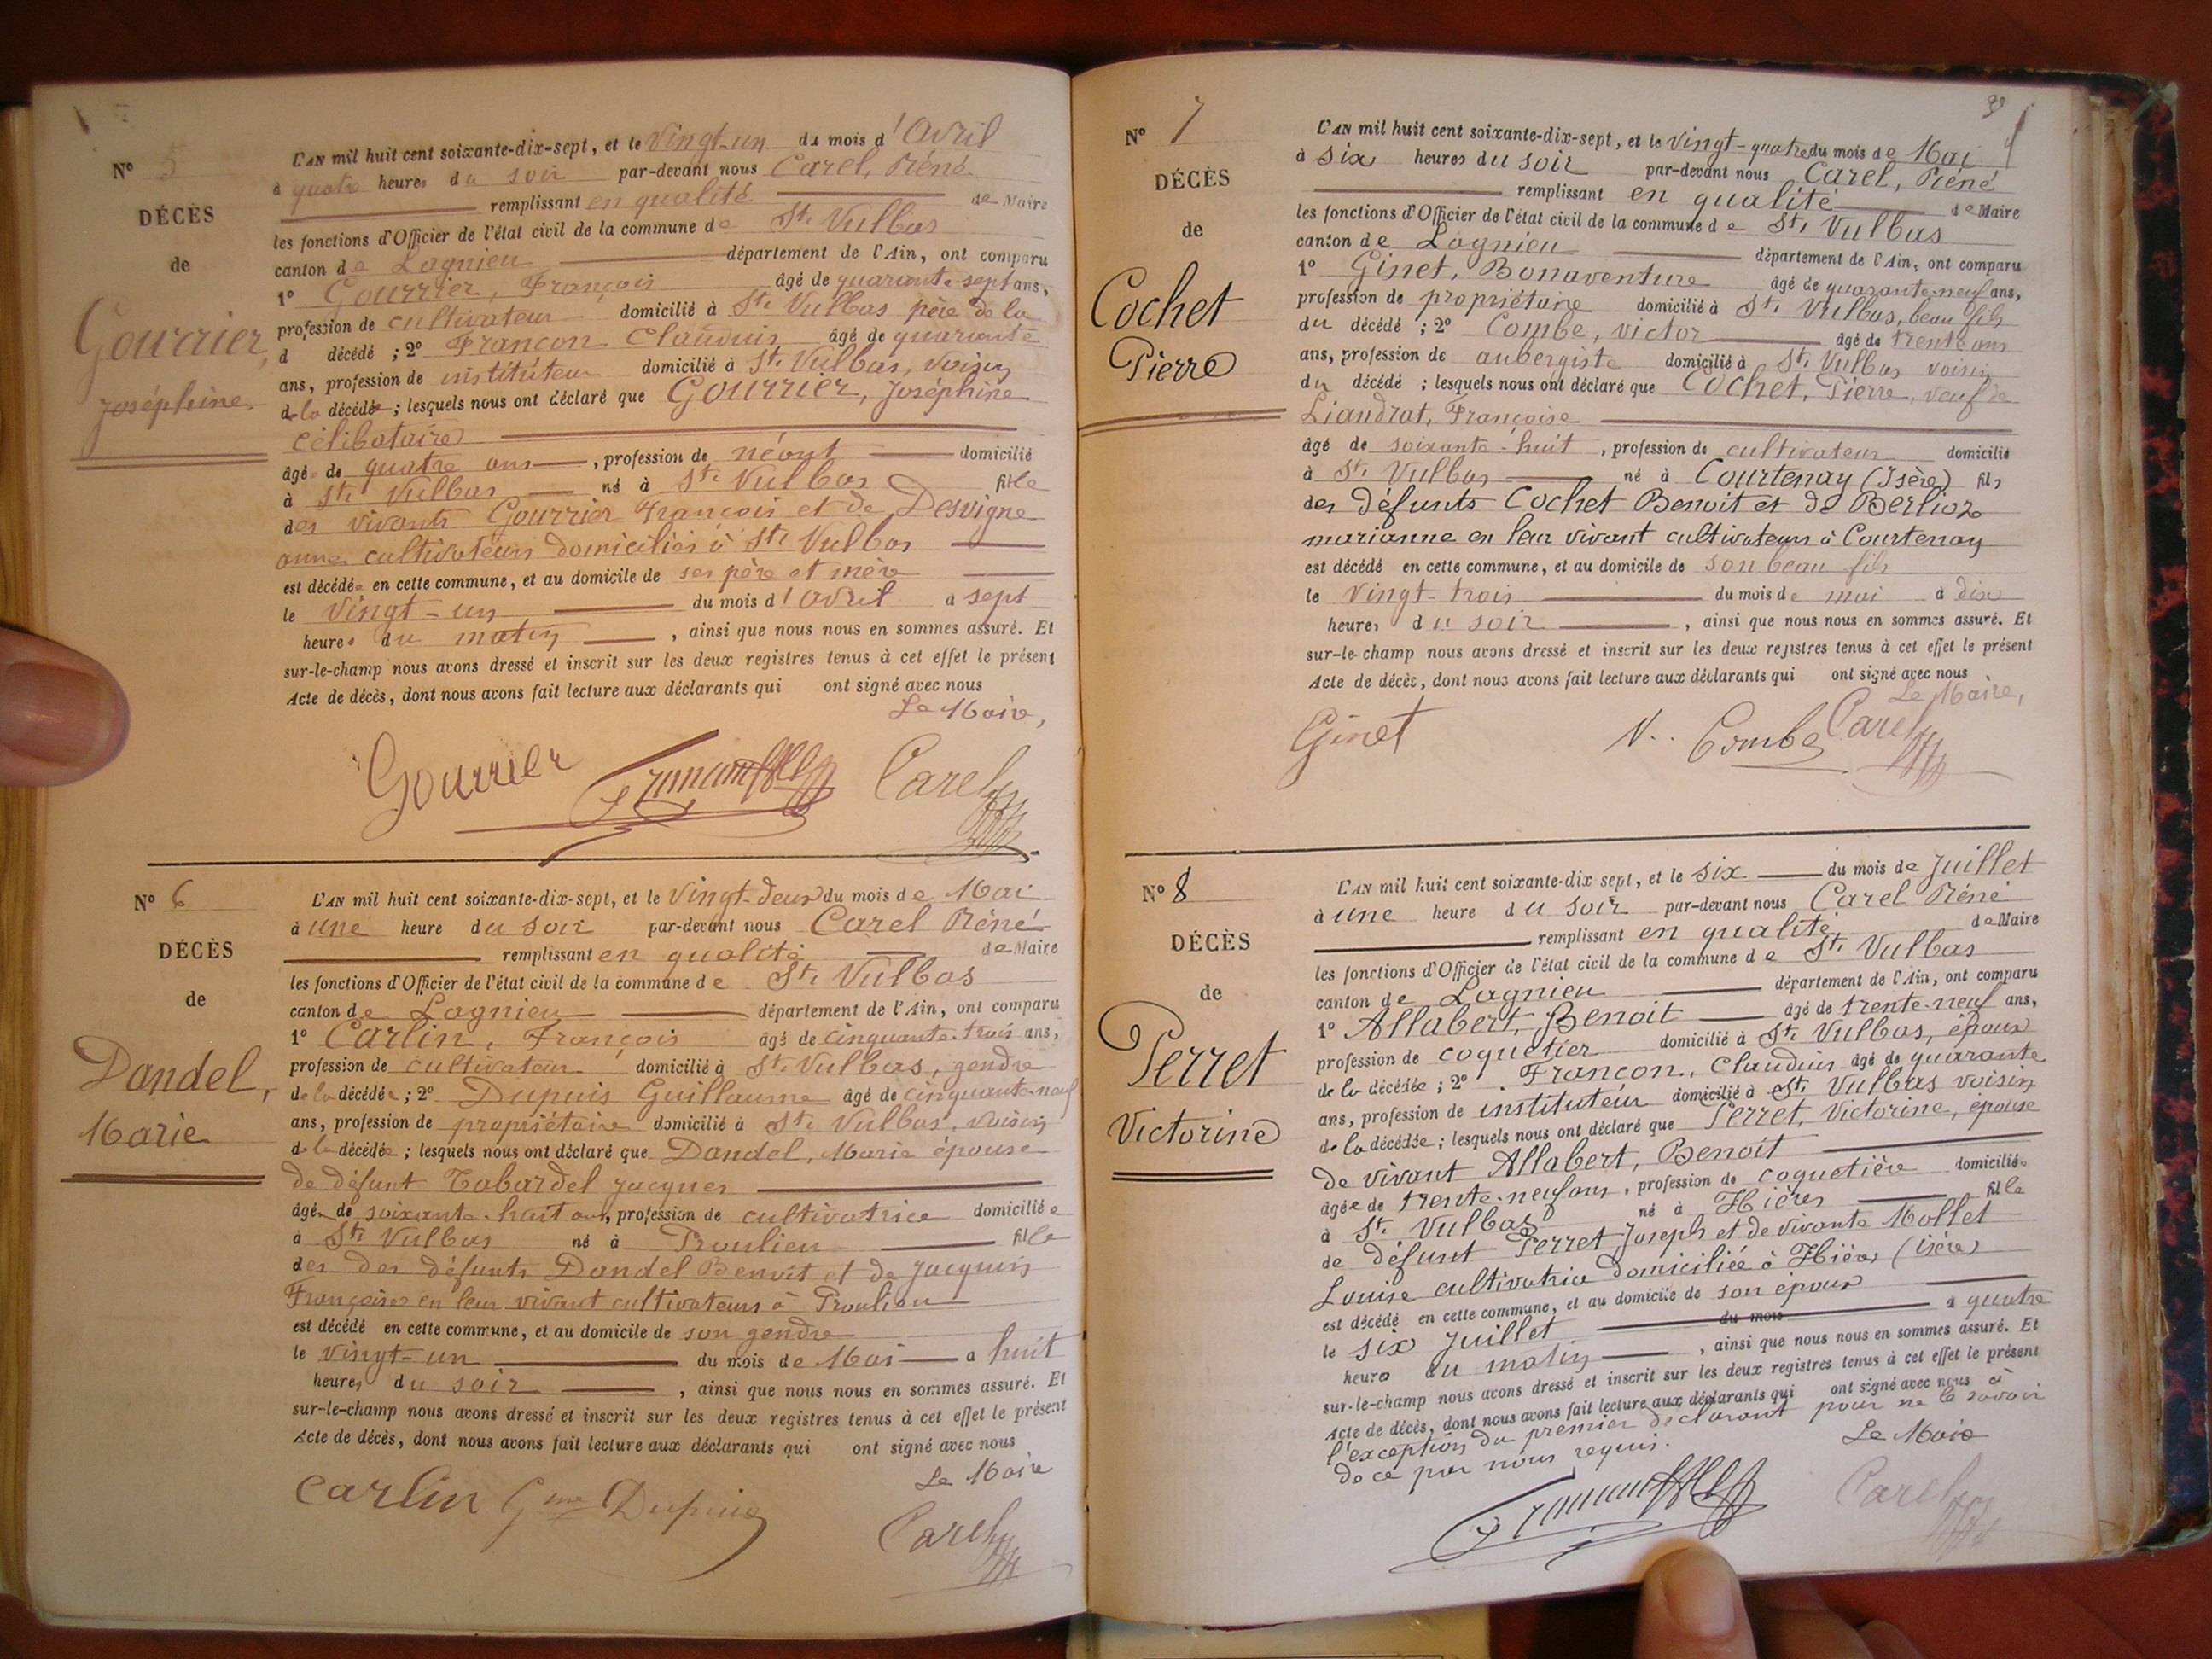 Nº 5
DÉCÈS
de
Gourrier,
Joséphine
L'AN mil huit cent soixante-dix-sept, et le vingt-un du mois d'Avril
à quatre heures du soir par-devant nous Carel, Réné
remplissant en qualité de Maire
les fonctions d'Officier de l'état civil de la commune de St. Vulbas
canton de Lagnieu département de l'Ain, ont comparu
1º Gourrier, François âgé de quarante-sept ans,
profession de cultivateur domicilié à St. Vulbas père de la
d décédé ; 2º Francon Claudius âgé de quarante
ans, profession de instituteur domicilié à St. Vulbas, voisin
de la décédée ; lesquels nous ont déclaré que Gourrier, Joséphine
célibataire
âgé de quatre ans, profession de néant domicilié
à St. Vulbas né à St. Vulbas fille
des vivants Gourrier François et de Desvigne
anne cultivateurs domiciliés à St. Vulbas
est décédée en cette commune, et au domicile de ses père et mère
le vingt-un du mois d'avril à sept
heures du matin, ainsi que nous nous en sommes assuré. Et
sur-le-champ nous avons dressé et inscrit sur les deux registres tenus à cet effet le présent
Acte de décès, dont nous avons fait lecture aux déclarants qui ont signé avec nous
Le Maire,
Gourrier Francon Carel
Nº 6
DÉCÈS
de
Dandel,
Marie
L'AN mil huit cent soixante-dix-sept, et le vingt-deux du mois de Mai
à une heure du soir par-devant nous Carel Réné
remplissant en qualité de Maire
les fonctions d'Officier de l'état civil de la commune de St. Vulbas
canton de Lagnieu département de l'Ain, ont comparu
1º Carlin, François âgé de cinquante-trois ans,
profession de cultivateur domicilié à St. Vulbas, gendre
de la décédée ; 2º Dupuis Guillaume âgé de cinquante-neuf
ans, profession de propriétaire domicilié à St. Vulbas, voisin
de la décédée ; lesquels nous ont déclaré que Dandel, Marie épouse
de défunt Tabardel Jacques
âgée de soixante-huit ans, profession de cultivatrice domiciliée
à St. Vulbas né à Proulieu fille
des des défunts Dandel Benoit et de Jacquin
Françoise en leur vivant cultivateurs à Proulieu
est décédé en cette commune, et au domicile de son gendre
le vingt-un du mois de Mai à huit
heures du soir, ainsi que nous nous en sommes assuré. Et
sur-le-champ nous avons dressé et inscrit sur les deux registres tenus à cet effet le présent
Acte de décès, dont nous avons fait lecture aux déclarants qui ont signé avec nous
Le Maire
Carlin Gme Dupuis
Carel
Nº 7
DÉCÈS
de
Cochet
Pierre
L'AN mil huit cent soixante-dix-sept, et le vingt-quatre du mois de Mai
à six heures du soir par-devant nous Carel, Réné
remplissant en qualité de Maire
les fonctions d'Officier de l'état civil de la commune de St. Vulbas
canton de Lagnieu département de l'Ain, ont comparu
1º Ginet, Bonaventure âgé de quarante-neuf ans,
profession de propriétaire domicilié à St. Vulbas, beau fils
du décédé ; 2º Combe, victor âgé de trente ans
ans, profession de aubergiste domicilié à St. Vulbas voisin
du décédé ; lesquels nous ont déclaré que Cochet, Pierre, veuf de
Liandrat, Françoise
âgé de soixante-huit, profession de cultivateur domicilié
à St. Vulbas né à Courtenay (Isère) fils
des défunts Cochet Benoit et de Berlioz
marianne en leur vivant cultivateurs à Courtenay
est décédé en cette commune, et au domicile de son beau fils
le vingt-trois du mois de mai à dix
heures du soir, ainsi que nous nous en sommes assuré. Et
sur-le-champ nous avons dressé et inscrit sur les deux registres tenus à cet effet le présent
Acte de décès, dont nous avons fait lecture aux déclarants qui ont signé avec nous
Le Maire,
Ginet V. Combe Carel
Nº 8
DÉCÈS
de
Perret
Victorine
L'AN mil huit cent soixante-dix sept, et le six du mois de Juillet
à une heure du soir par-devant nous Carel Réné
remplissant en qualité de Maire
les fonctions d'Officier de l'état civil de la commune de St. Vulbas
canton de Lagnieu département de l'Ain, ont comparu
1º Allabert, Benoit âgé de trente-neuf ans,
profession de coquetier domicilié à St. Vulbas, époux
de la décédée ; 2º Francon, Claudius âgé de quarante
ans, profession de instituteur domicilié à St. Vulbas voisin
de la décédée ; lesquels nous ont déclaré que Perret, Victorine, épouse
de vivant Allabert, Benoit
âgée de trente-neuf ans, profession de coquetière domiciliée
à St. Vulbas né à Hières fille
de défunt Perret Joseph et de vivante Mollet
Louise cultivatrice domiciliée à Hières (Isère)
est décédé en cette commune, et au domicile de son époux
le six Juillet du mois à quatre
heure du matin, ainsi que nous nous en sommes assuré. Et
sur-le-champ nous avons dressé et inscrit sur les deux registres tenus à cet effet le présent
Acte de décès, dont nous avons fait lecture aux déclarants qui ont signé avec nous à
l'exception du premier déclarant pour ne le savoir
de ce par nous requis.
Le Maire
Francon Carel